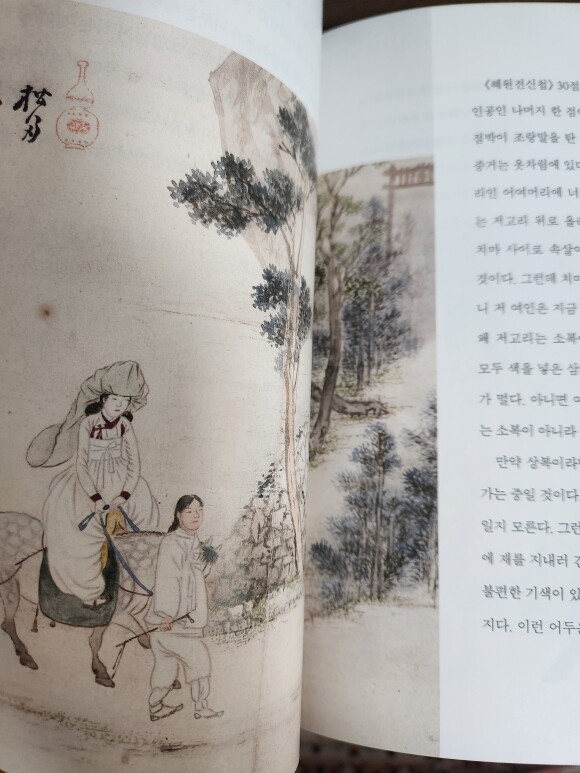 松
《혜원전신첩》 30점
인공인 나머지 한 점
점박이 조랑말을 탄
증거는 옷차림에 있다
리인 어여머리에 너
는 저고리 위로 올
치마 사이로 속살이
것이다. 그런데 치마
니 저 여인은 지금
왜 저고리는 소복
모두 색을 넣은 삼
가 멀다. 아니면 여
는 소복이 아니라
만약 상복이라면
가는 중일 것이다
일지 모른다. 그런
에 재를 지내러 간
불편한 기색이 있
지다. 이런 어두운